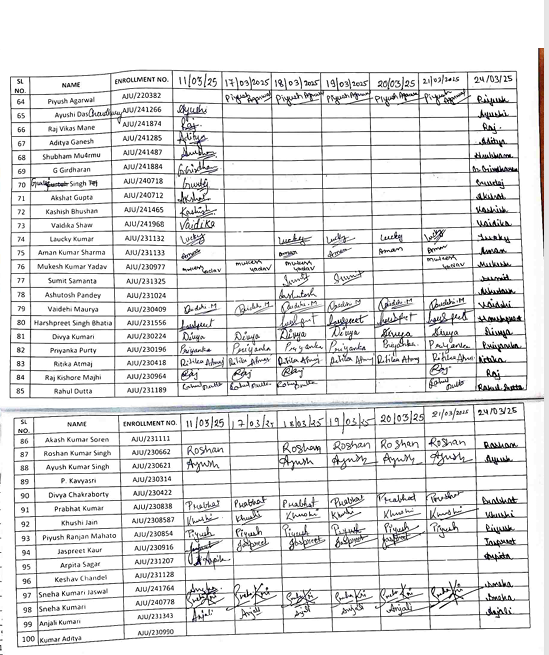 SL NO. NAME ENROLLMENT NO. 11/03/25 17/03/2025 18/03/2025 19/03/2025 20/03/2025 21/03/2025 24/03/25
64 Piyush Agarwal AJU/220382 Piyush Agarwal Piyush Agarwal Piyush Agarwal Piyush Agarwal Piyush Agarwal Piyush
65 Ayushi Das Chowdhury AJU/241266 Ayushi Ayushi
66 Raj Vikas Mane AJU/241874 Raj Raj
67 Aditya Ganesh AJU/241285 Aditya Aditya
68 Shubham Murmu AJU/241487 Shubham
69 G Girdharan AJU/241884
70 Singh AJU/240718 Gurtej Gurtej
71 Akshat Gupta AJU/240712 Akshat Akshat
72 Kashish Bhushan AJU/241465 Kashish Kashish
73 Vaidika Shaw AJU/241968 Vaidika Vaidika
74 Laucky Kumar AJU/231132 Lucky Lucky Lucky Lucky Lucky Lucky
75 Aman Kumar Sharma AJU/231133 Aman Aman Aman Aman Aman
76 Mukesh Kumar Yadav AJU/230977 mukesh yadav mukesh yadav mukesh yadav mukesh yadav Mukesh
77 Sumit Samanta AJU/231325 Sumit Sumit Sumit
78 Ashutosh Pandey AJU/231024 Ashutosh Ashutosh
79 Vaidehi Maurya AJU/230409 Vaidehi.M Vaidehi.M Vaidehi.M Vaidehi.M Vaidehi.M Vaidehi.M Vaidehi
80 Harshpreet Singh Bhatia AJU/231556 Harshpreet
81 Divya Kumari AJU/230224 Divya Divya Divya Divya Divya Divya Divya
82 Priyanka Purty AJU/230196 Priyanka Priyanka Priyanka Priyanka Priyanka Priyanka Priyanka
83 Ritika Atmaj AJU/230418 Ritika Atmaj Ritika Atmaj Ritika Atmaj Ritika Atmaj Ritika Atmaj Ritika Atmaj Ritika
84 Raj Kishore Majhi AJU/230964 Raj Raj Raj Raj Raj
85 Rahul Dutta AJU/231189 Rahul Dutta Rahul Dutta Rahul Dutta Rahul Dutta Rahul Dutta
SL NO. NAME ENROLLMENT NO. 11/03/25 17/03/25 18/03/25 19/03/25 20/03/25 21/03/2025 24/03/25
86 Akash Kumar Soren AJU/231111
87 Roshan Kumar Singh AJU/230662 Roshan Roshan Roshan Roshan Roshan Roshan
88 Ayush Kumar Singh AJU/230621 Ayush Ayush Ayush Ayush Ayush Ayush
89 P. Kavyasri AJU/230314
90 Divya Chakraborty AJU/230422
91 Prabhat Kumar AJU/230838 Prabhat Prabhat Prabhat Prabhat Prabhat Prabhat Prabhat
92 Khushi Jain AJU/2308587 Khushi Khushi Khushi Khushi Khushi Khushi Khushi
93 Piyush Ranjan Mahato AJU/230854 Piyush Piyush Piyush Piyush Piyush Piyush Piyush
94 Jaspreet Kaur AJU/230916 Jaspreet Jaspreet Jaspreet Jaspreet Jaspreet Jaspreet
95 Arpita Sagar AJU/231207 Arpita Arpita
96 Keshav Chandel AJU/231128
97 Sneha Kumari Jaswal AJU/241764 Sneha Sneha
98 Sneha Kumari AJU/240778 Sneha
99 Anjali Kumari AJU/231343 Anjali Anjali Anjali Anjali Anjali Anjali
100 Kumar Aditya AJU/230990